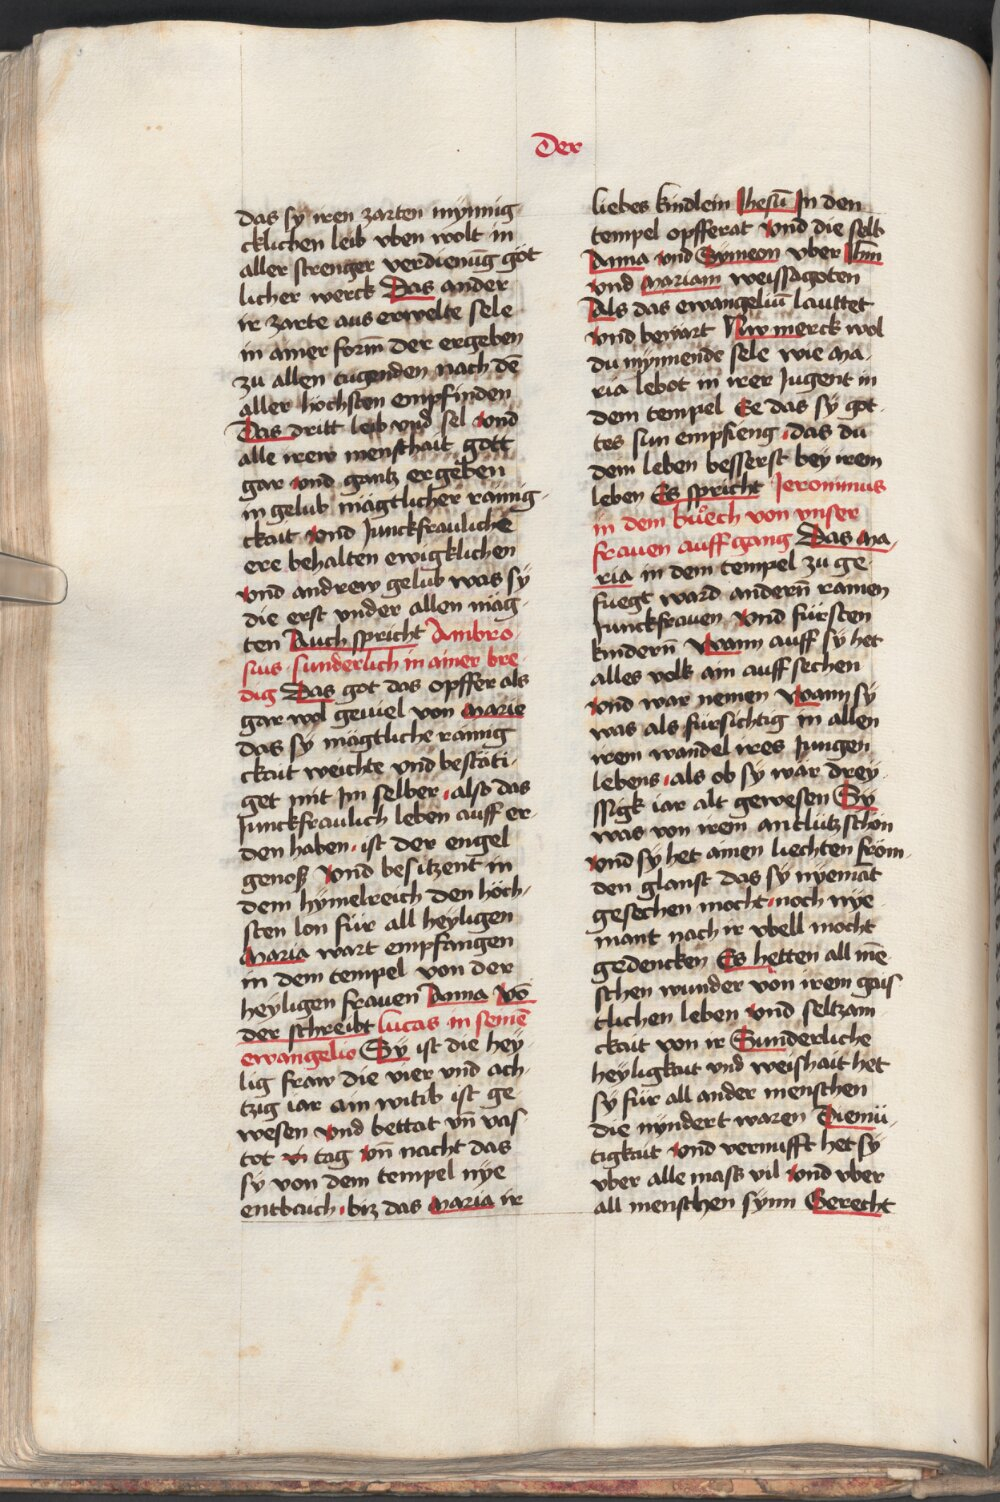 Der
das sy iren zarten mynnig
cklichen leib vben wolt in
aller strenger verdienūg göt
licher werck Das ander
ir zarte aus erwelte sele
in ainer form̄ der ergeben
zu allen tugenden nach dē
aller höchsten empfinden
Das dritt leib vnd sel vnd
alle irew menschait gott
gar vnd gantz ergeben
in gelub mägtlicher rainig
ckait vnd Junckfrauliche
ere behalten ewigklichen
vnd andrew gelub was sy
die erst vnder allen mäg
ten Auch spricht Ambro
sius sunderlich in ainer bre
dig Das got das opffer als
gar wol geuiel von Marie
das sy mägtliche rainig
ckait weichte vnd bestäti
get mit Im selber also das
Junckfraulich leben auff er
den haben ist der engel
genoß vnd besitzent in
dem hymelreich den höch
sten lon für all heyligen
Maria wart empfangen
in dem tempel von der
heyligen frauen Anna Vō
der schreibt lucas in seinē
ewangelio Sy ist die hey
lig fraw die vier vnd ach
tzig iar ain witib ist ge
wesen vnd bettat vn̄ vas
tot tag vn̄ nacht das
sy von dem tempel nye
entbaich biz das Maria ir
liebes kindlein Jhesū In den
tempel opfferat vnd die selb
Anna vnd Symeon vber Ihm̄
vnd Mariam weissagoten
Als das ewangeliū lauttet
vnd bewart Nw merck wol
du mynnende sele wie Ma
ria lebot in irer Jugent in
dem tempel Ee das sy got
tes sun empfieng das du
dem leben besserst bey irem
leben Es spricht Jeronimus
in dem buͦech von vnser
frauen auffgang Das Ma
ria in dem tempel zu ge
fuegt ward andern̄ rainen
Junckfrauen vnd fürsten
kindern̄ Wann auff sy het
alles volk ain auff sechen
vnd war nemen Wann sy
was als fürsichtig in allen
irem wandel ires Jungen
lebens als ob sy wär drey
ssigk iar alt gewesen Sy
was von irem antlütz schön
vnd sy het ainen liechten fröm
den glanst das sy nyemāt
gesechen mocht noch nye
mant nach ir vbell mocht
gedencken Es hetten all mē
schen wunder von irem gais
tlichen leben vnd seltzam
ckait von ir Sunderliche
heyligkait vnd weishait het
sy für all ander menschen
die nyndert waren Diemü
tigkait vnd vernufft het sy
vber alle mass vil vnd vber
all menschen synn Gerecht